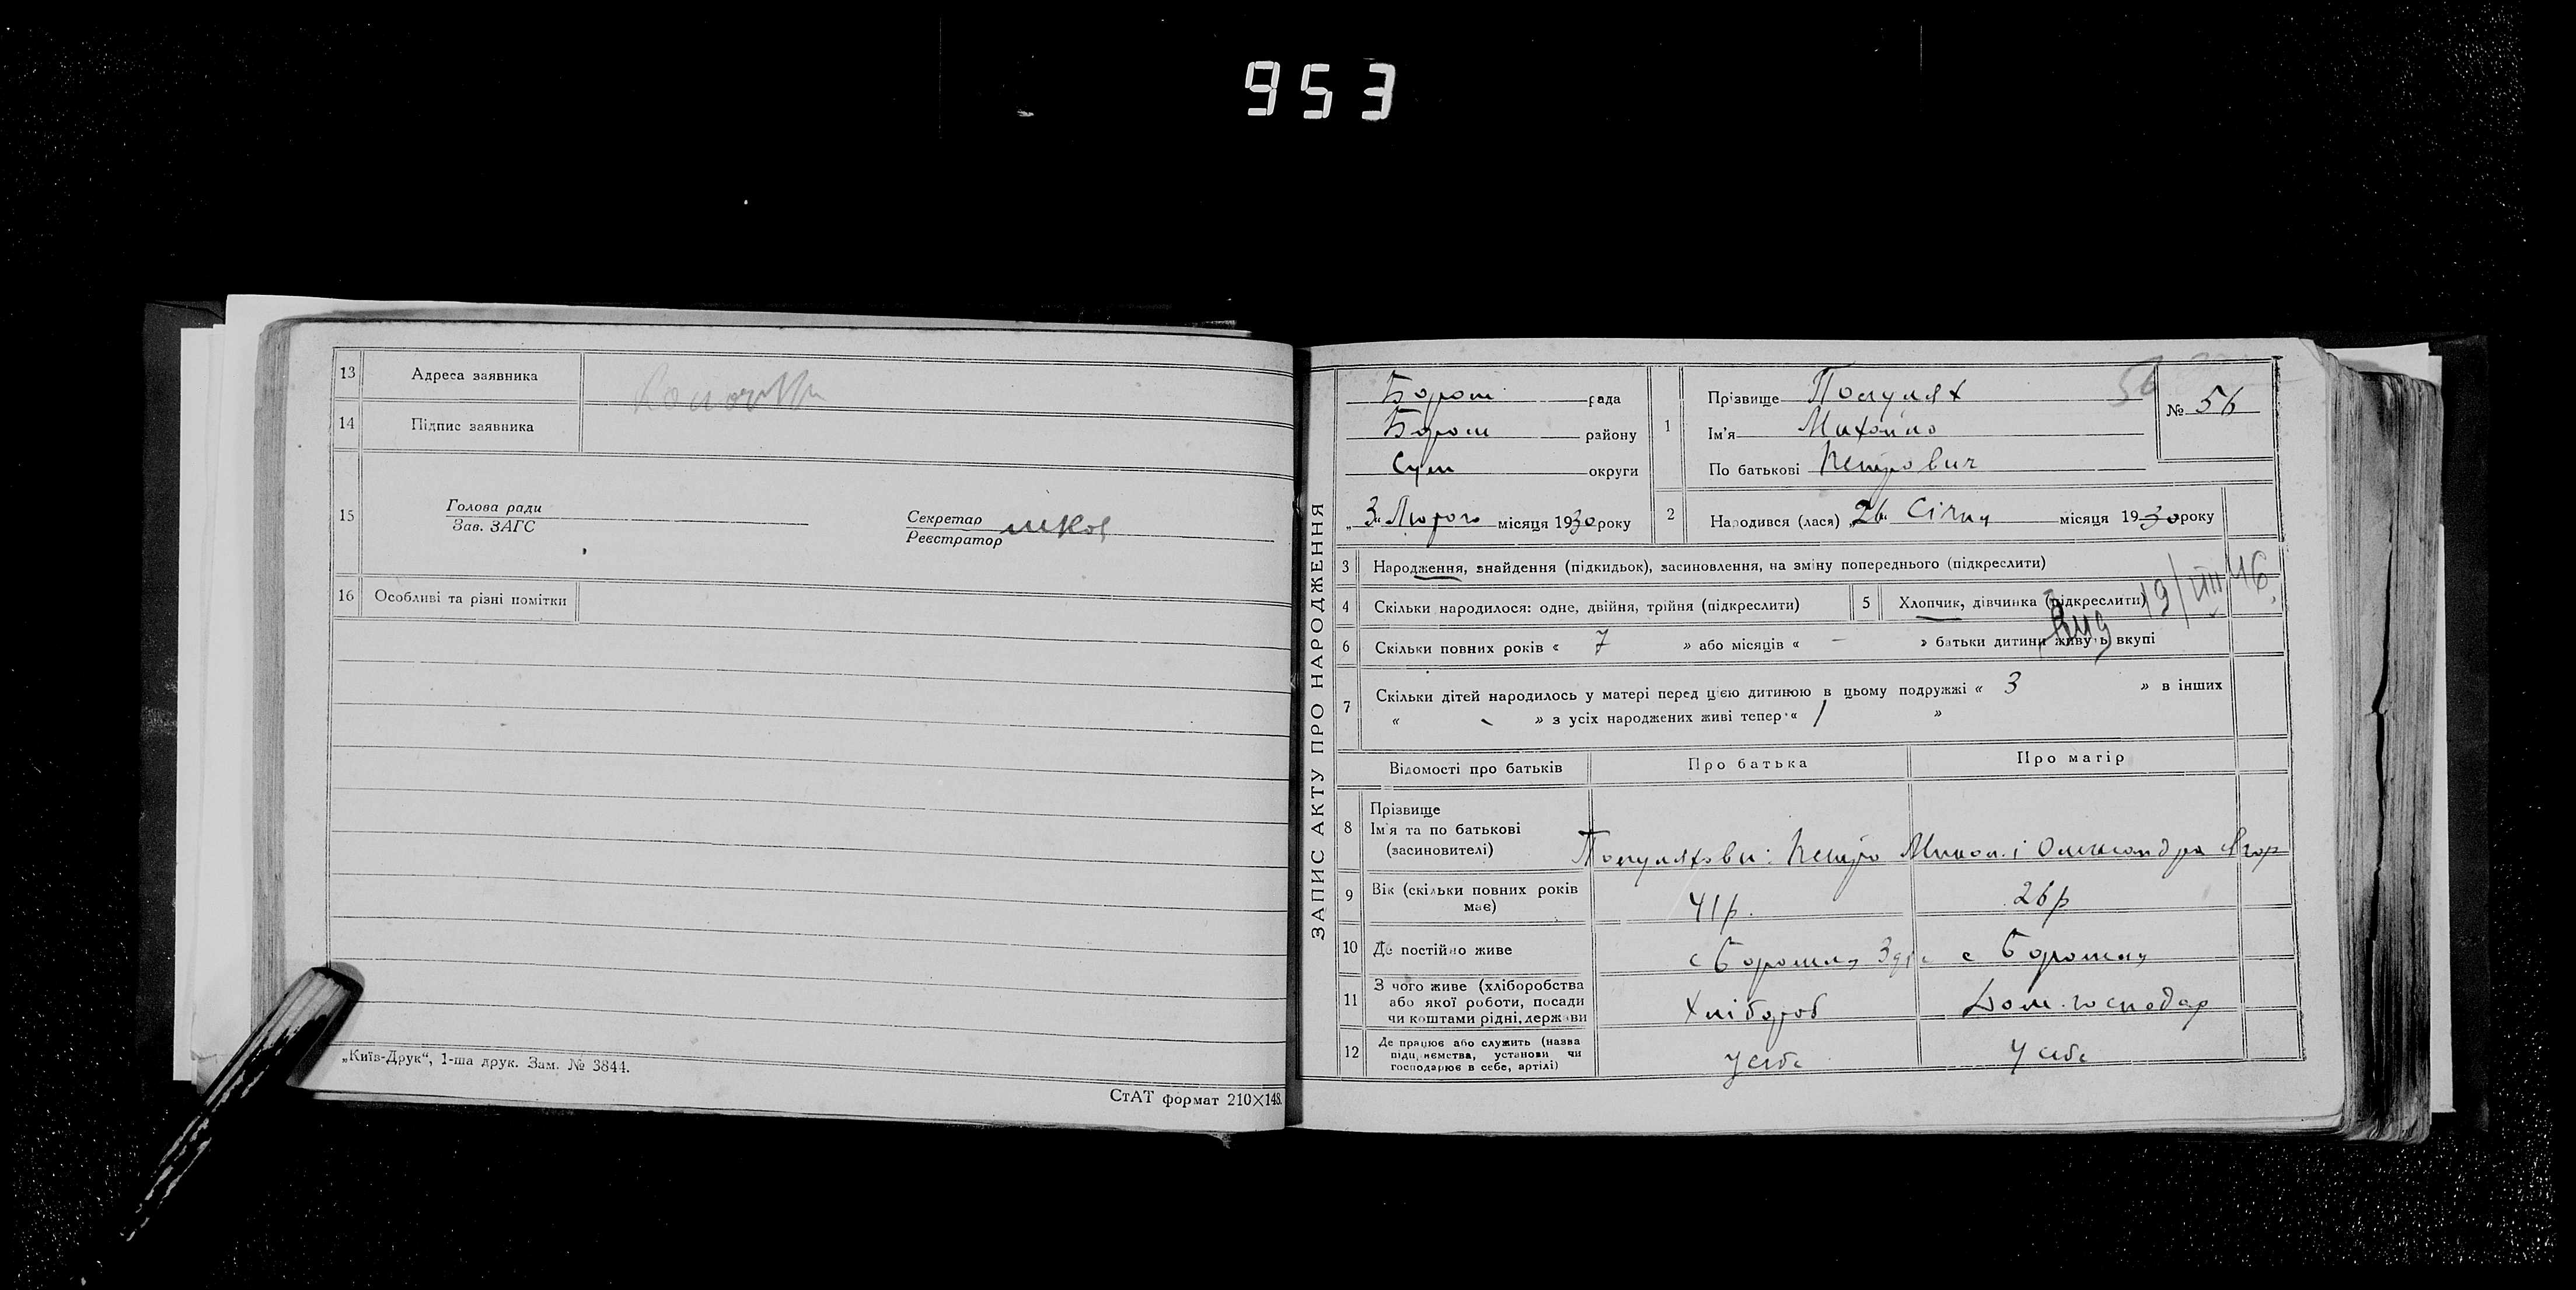 953
13 Адреса заявника
14 Підпис заявника
15 Голова ради
Зав. ЗАГС
Секретар
Реєстратор
16 Особливі та різні помітки
„Київ-Друк“, 1-ша друк. Зам. № 3844.
СтАТ формат 210×148.
ЗАПИС АКТУ ПРО НАРОДЖЕННЯ
Бором рада
Бором району
Сум округи
„3“ Лютого місяця 1930 року
1 Прізвище
Ім'я Михайло
По батькові Петрович
№ 56
56
2 Народився (лася) „26“ Січня місяця 1930 року
3 Народження, знайдення (підкидьок), засиновлення, на зміну попереднього (підкреслити)
4 Скільки народилося: одне, двійня, трійня (підкреслити) 5 Хлопчик, дівчинка (підкреслити)
19/VIII 46
6 Скільки повних років « 7 » або місяців « – » батьки дитини живуть вкупі
7 Скільки дітей народилось у матері перед цією дитиною в цьому подружжі « 3 » в інших
« » з усіх народжених живі тепер « 1 »
Відомості про батьків Про батька Про матір
8 Прізвище
Ім'я та по батькові
(засиновителі)
Петро Микол. і Олександра Ягор
9 Вік (скільки повних років
має)
41 р. 26 р
10 Де постійно живе с Боромля с Боромля
11 З чого живе (хліборобства
або якої роботи, посади
чи коштами рідні, держави
Хлібороб Дом. господар
12 Де працює або служить (назва
підприємства, установи чи
господарює в себе, артілі)
У себе У себе